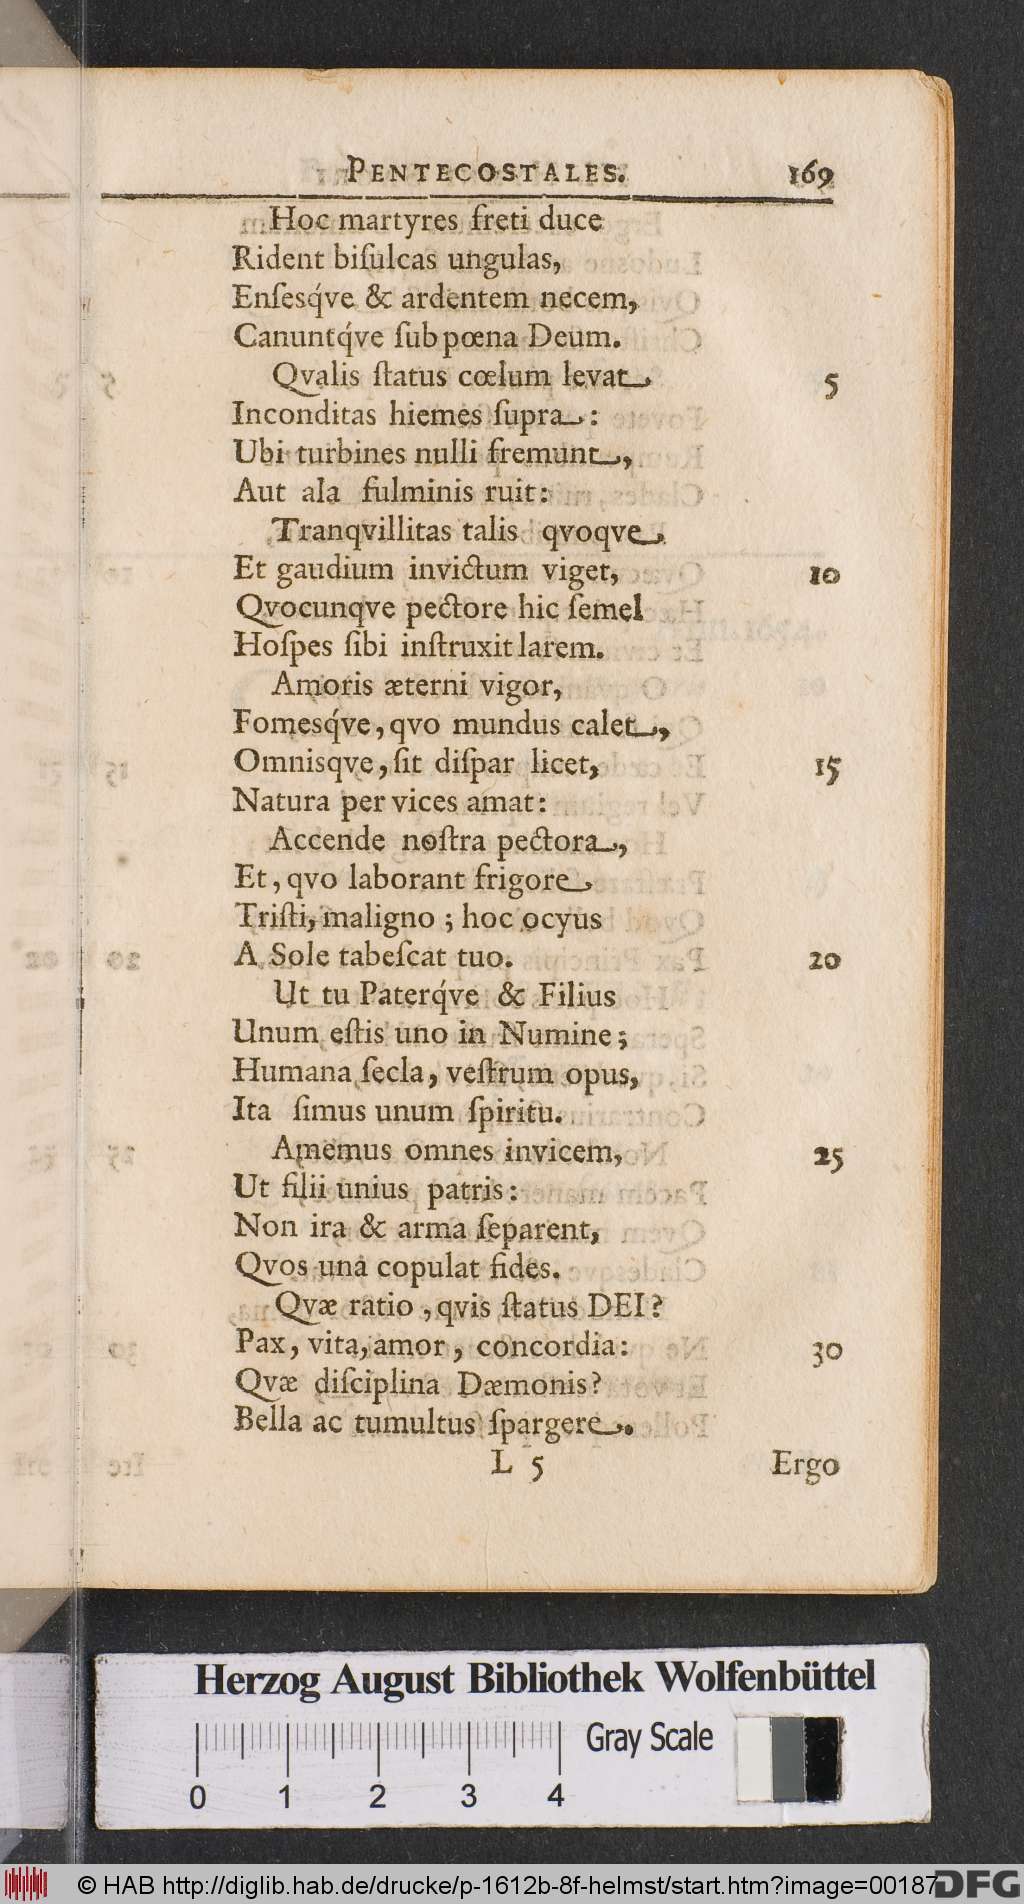 PENTECOSTALES. 169
Hoc martyres freti duce
Rident biſulcas ungulas,
Enſesq́ve & ardentem necem,
Canuntq́ve ſub pœna Deum.
Qvalis ſtatus cœlum levat 5
Inconditas hiemes ſupra:
Ubi turbines nulli fremunt,
Aut ala fulminis ruit:
Tranqvillitas talis qvoqve
Et gaudium invictum viget, 10
Qvocunqve pectore hic ſemel
Hoſpes ſibi inſtruxit larem.
Amoris æterni vigor,
Fomesq́ve, qvo mundus calet,
Omnisqve, ſit diſpar licet, 15
Natura per vices amat:
Accende noſtra pectora,
Et, qvo laborant frigore
Triſti, maligno; hoc ocyus
A Sole tabeſcat tuo. 20
Ut tu Paterq́ve & Filius
Unum eſtis uno in Numine;
Humana ſecla, veſtrum opus,
Ita ſimus unum ſpiritu.
Amemus omnes invicem, 25
Ut filii unius patris:
Non ira & arma ſeparent,
Qvos unà copulat fides.
Qvæ ratio, qvis ſtatus DEI?
Pax, vita, amor, concordia: 30
Qvæ diſciplina Dæmonis?
Bella ac tumultus ſpargere.
L 5 Ergo
Herzog August Bibliothek Wolfenbüttel
Gray Scale
0 1 2 3 4
© HAB http://diglib.hab.de/drucke/p-1612b-8f-helmst/start.htm?image=00187
DFG